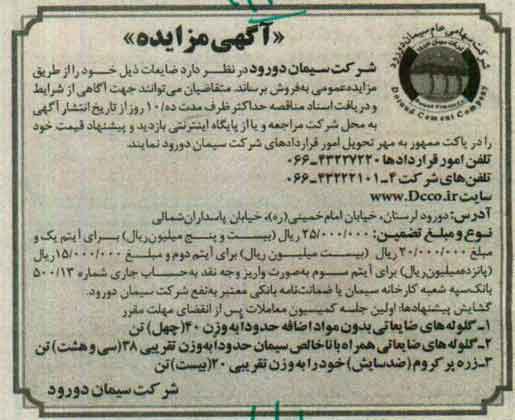 «آگهی مزایده»
شرکت سهامی عام سیمان دورود
Doroud Cement Company
شرکت سیمان دورود در نظر دارد ضایعات ذیل خود را از طریق
مزایده عمومی به فروش برساند. متقاضیان می‌توانند جهت آگاهی از شرایط
و دریافت اسناد مناقصه حداکثر ظرف مدت ده/۱۰ روز از تاریخ انتشار آگهی
به محل شرکت مراجعه و یا از پایگاه اینترنتی بازدید و پیشنهاد قیمت خود
را در پاکت ممهور به مهر تحویل امور قراردادهای شرکت سیمان دورود نمایند.
تلفن امور قراردادها ۴۳۲۲۷۲۲۰-۰۶۶
تلفن‌های شرکت ۴-۴۳۲۲۲۱۰۱-۰۶۶
سایت www.Dcco.ir
آدرس: دورود لرستان، خیابان امام خمینی (ره)، خیابان پاسداران شمالی
نوع و مبلغ تضمین: ۲۵/۰۰۰/۰۰۰ ریال (بیست و پنج میلیون ریال) برای آیتم یک و
مبلغ ۲۰/۰۰۰/۰۰۰ ریال (بیست میلیون ریال) برای آیتم دوم و مبلغ ۱۵/۰۰۰/۰۰۰ ریال
(پانزده میلیون ریال) برای آیتم سوم به صورت واریز وجه نقد به حساب جاری شماره ۵۰۰/۱۳
بانک سپه شعبه کارخانه سیمان یا ضمانت‌نامه بانکی معتبر به نفع شرکت سیمان دورود.
گشایش پیشنهادها: اولین جلسه کمیسیون معاملات پس از انقضای مهلت مقرر
۱ـ گلوله های ضایعاتی بدون مواد اضافه حدوداً به وزن ۴۰ (چهل) تن
۲ـ گلوله های ضایعاتی همراه با ناخالص سیمان حدوداً به وزن تقریبی ۳۸ (سی و هشت) تن
۳ـ زره پر کروم (ضدسایش) خود را به وزن تقریبی ۲۰ (بیست) تن
شرکت سیمان دورود